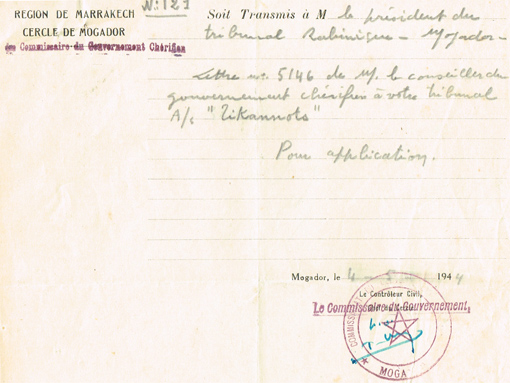 REGION DE MARRAKECH
CERCLE DE MOGADOR
Commissaire du Gouvernement Chérifien
N: 121
Soit Transmis à M le président du
tribunal Rabinique - Mogador -
Lettre no 5146 de M. le conseiller du
gouvernement chérifien à votre tribunal
A/s "Tikannots"
Pour application.
Mogador, le 4 - 5 - 1944
Le Contrôleur Civil,
Le Commissaire du Gouvernement,
COMMISSAI
MOGA